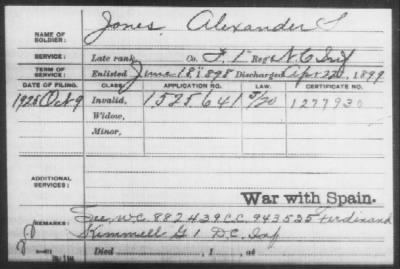 NAME OF SOLDIER: Jones, Alexander S
SERVICE: Late rank, Co. F. 1" Reg't N.C. Inf
TERM OF SERVICE: Enlisted June 18" 1898 Discharged Apr 22, 1899
DATE OF FILING. CLASS. APPLICATION NO. LAW. CERTIFICATE NO.
1925 Oct 9 Invalid, 1525641 5/20 1277930
Widow,
Minor,
ADDITIONAL SERVICES:
War with Spain.
REMARKS: See W.C. 882439 C.C. 943525 Ferdinand
Kimmell G 1 D.C. Inf
Died , 1 , at